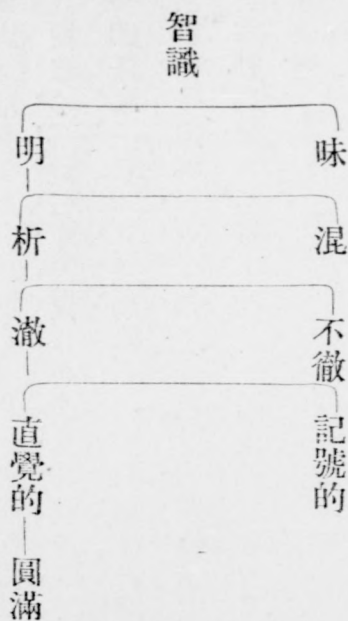 智識
昧
明
混
析
不徹
澈
記號的
直覺的—圓滿